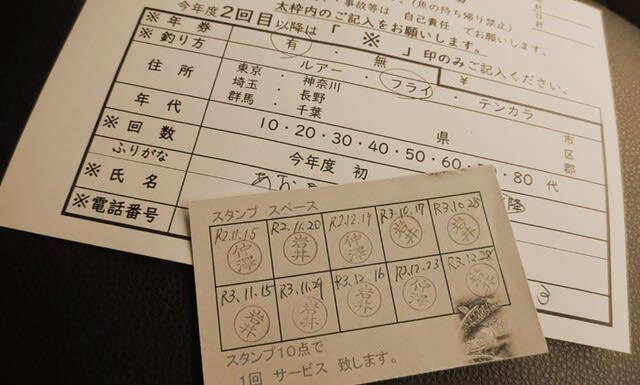 事故等は 自己責任 でお願いします。
(魚の持ち帰り禁止)
太枠内のご記入をお願いします。
今年度2回目以降は「 ※ 」印のみご記入ください。
※年券 有 ・ 無 ¥
※釣り方 ルアー ・ フライ ・ テンカラ
住所 東京 ・ 神奈川
埼玉 ・ 長野
群馬 ・ 千葉
県
市
区
郡
年代 10・20・30・40・50・60・ ・80 代
※回数 今年度 初 降
ふりがな
※氏名
※電話番号
スタンプ スペース
R2.11.15 R2.11.20 R2.12.19 R3.10.17 R3.10.28
仲澤 岩井 仲澤 岩井 岩井
R3.11.15 R3.11.29 R3.12.16 R3.12.23 R3.12.28
岩井 岩井 岩井 仲澤
スタンプ10点で
1回 サービス 致します。